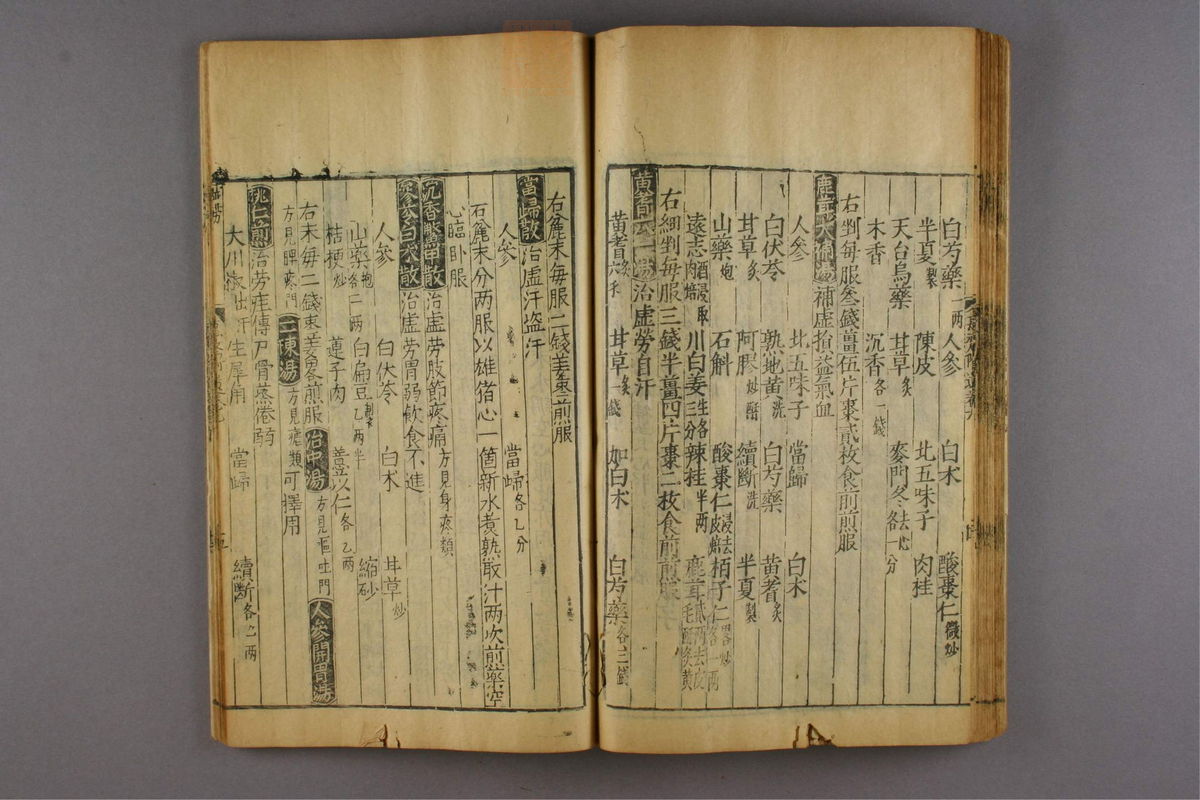 白芍藥一两 人參 白术 酸棗仁微炒
半夏製 陳皮 北五味子 肉桂
天台烏藥 甘草炙 麥門冬去心各一分
木香 沉香各一錢
右剉每服叄錢薑伍片棗貳枚食前煎服
鹿茸大補湯 補虛損益氣血
人參 北五味子 當歸 白术
白伏苓 熟地黄洗 白芍藥 黄耆炙
甘草炙 阿膠炒 續斷洗 半夏製
山藥炮 石斛 酸棗仁浸去皮 柏子仁
遠志酒浸取肉焙 川白姜生 辣桂半两 鹿茸
右細剉每服三錢半薑四片棗二枚食前煎服
黄耆六一湯治虛勞自汗
黄耆炙六 甘草炙一錢 加白术 白芍藥各三錢
右麄末每服二錢姜棗煎服
當歸散 治虛汗盜汗
人參 當歸各乙分
右麄末分两服以雄猪心一箇新水煮熟取汁两次煎藥空
心臨卧服
沉香鱉甲散治虛勞肢節疼痛方見身疼類
參苓白术散治虛勞胃弱飲食不進
人參 白伏苓 白术 甘草炒
山藥炮各二两 白扁豆乙两半 薏苡仁各乙两 縮砂
桔梗炒 蓮子肉
右末每二錢棗姜煎服 治中湯 方見嘔吐門 人參開胃湯
方見脾疼門 二陳湯 方見瘧類可擇用
桃仁煎 治勞疰傳尸骨蒸倦弱
大川椒出汗 生犀角 當歸 續斷各二两